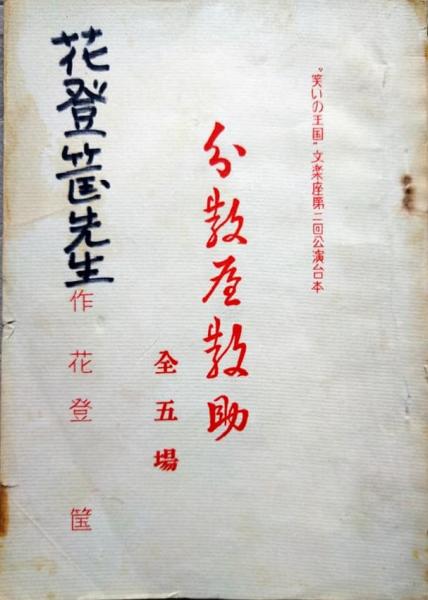 "笑いの王国"文楽座第二回公演台本
分散屋散助
全五場
作 花登 筐
花登筐先生